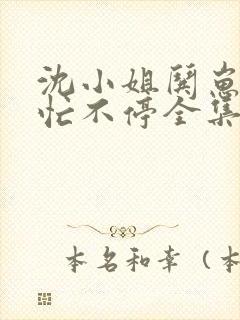 沈小姐闋崽
忙不停全集
本名和幸（本